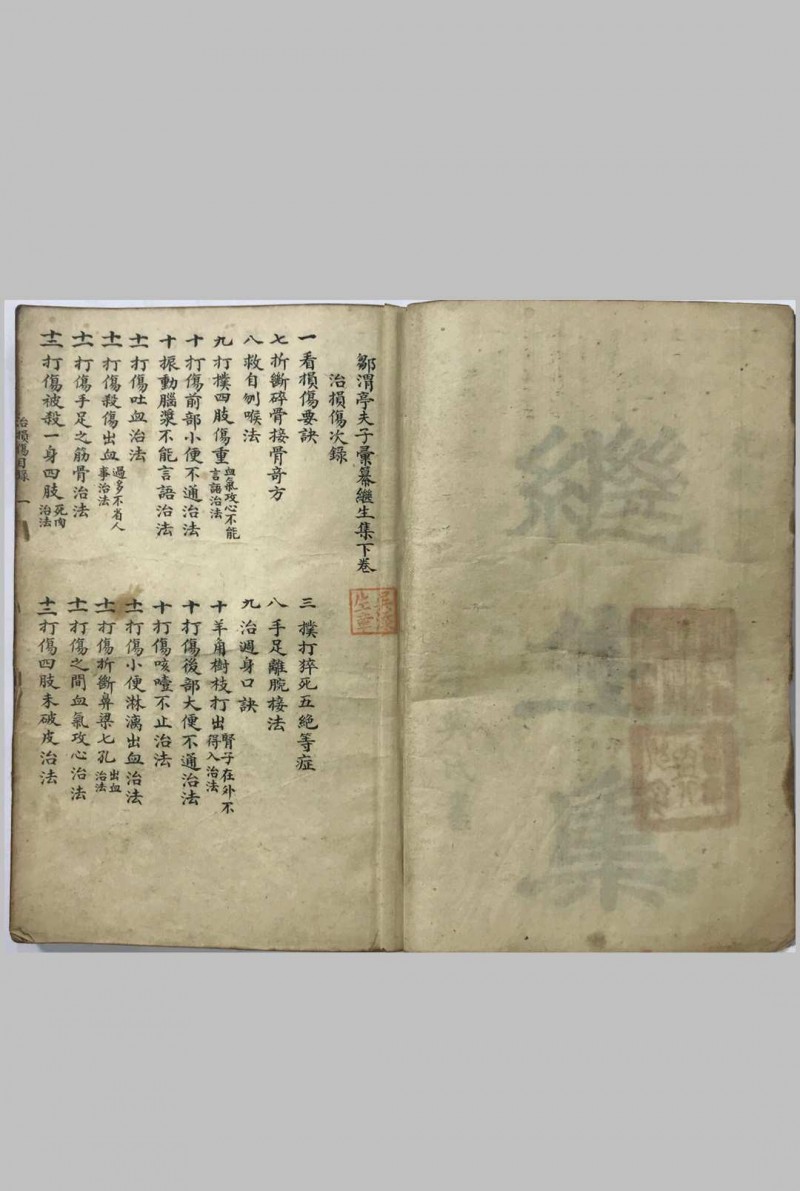 鄒渭亭夫子彙纂繼生集下卷
治損傷次錄
一看損傷要訣
三撲打猝死五絕等症
七折斷碎骨接骨奇方
八手足離腕接法
八救自刎喉法
九治週身口訣
九打撲四肢傷重血氣攻心不能言語治法
十羊角樹枝打出腎子在外不得入治法
十打傷前部小便不通治法
十打傷後部大便不通治法
十振動腦漿不能言語治法
十打傷咳噎不止治法
十一打傷吐血治法
十一打傷小便淋漓出血治法
十一打傷殺傷出血過多不省人事治法
十一打傷折斷鼻梁七孔出血治法
十一打傷手足之筋骨治法
十一打傷之間血氣攻心治法
十二打傷被殺一身四肢死肉治法
十二打傷四肢未破皮治法
治損傷目錄
一
繼生集